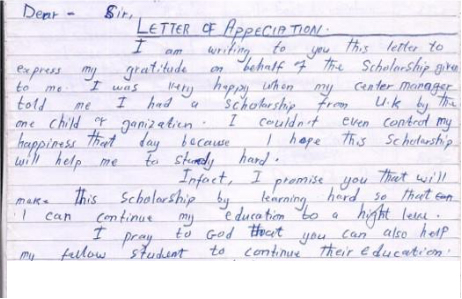 Dear - Sir,
LETTER OF APPECIATION.
I am writing to you this letter to
express my gratitude on behalf of the Scholarship given
to me. I was very happy when my center manager
told me I had a scholarship from U.K by the
one child organization. I couldn't even control my
happiness that day because I hope this scholarship
will help me to study hard.
Infact, I promise you that will
make this scholarship by learning hard so that
I can continue my education to a hight level.
I pray to God that you can also help
my fellow student to continue their education.